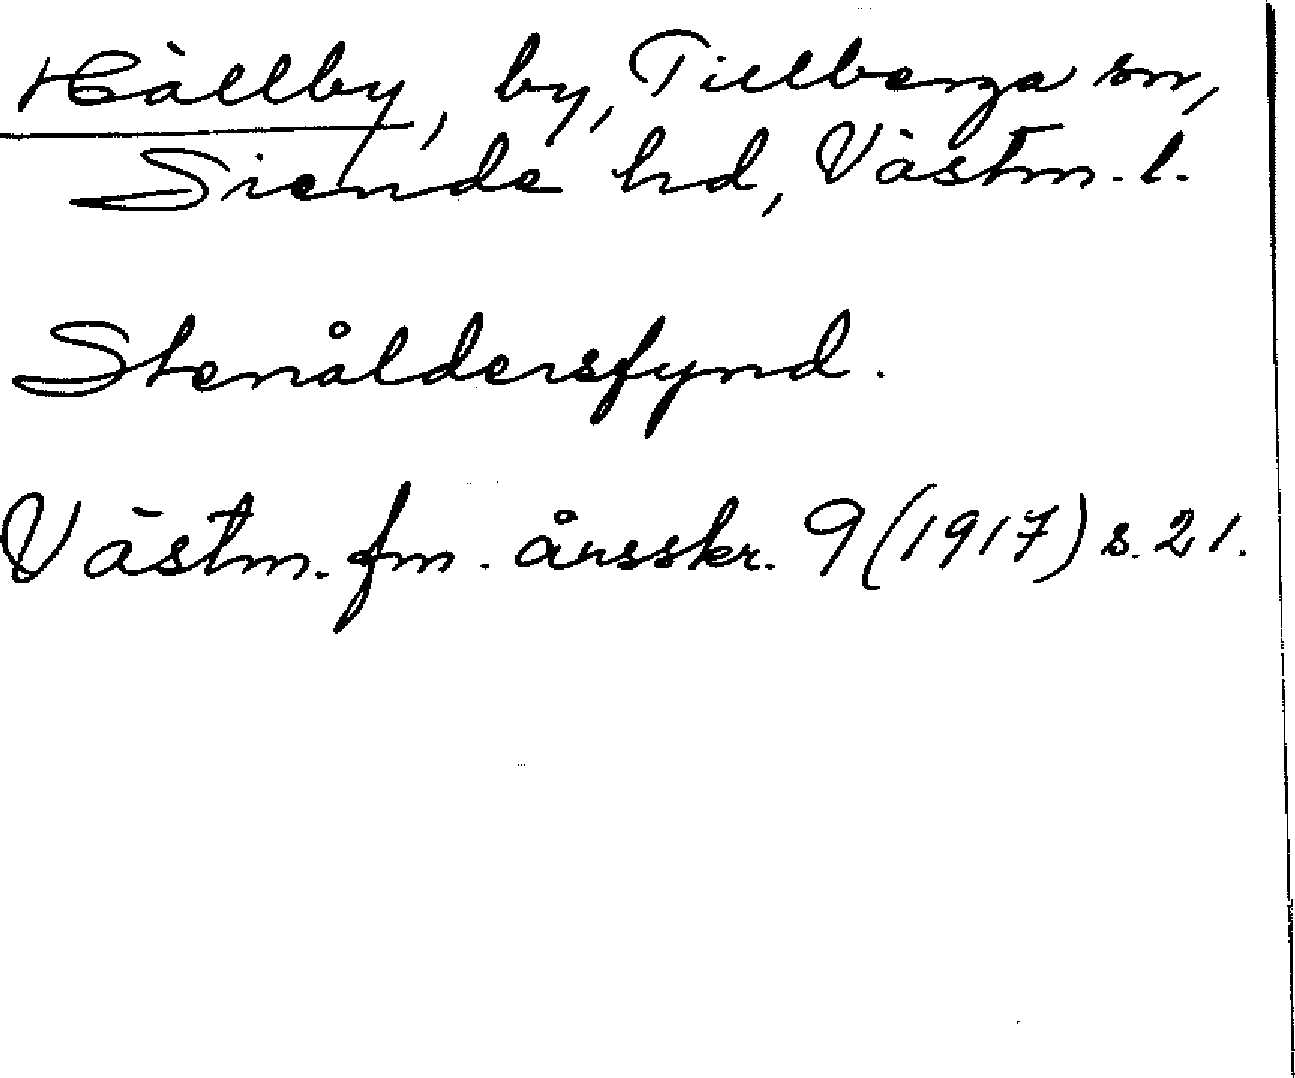 Hällby, by, Tillberga sn,
Siende hd, Västm. l.
Stenåldersfynd.
Västm. fm. årsskr. 9 (1917) s. 21.